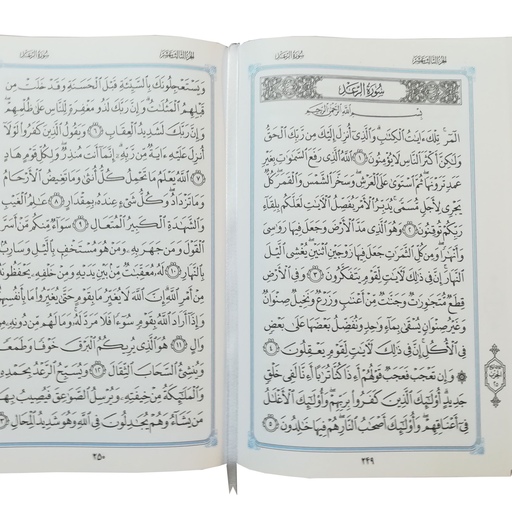 سُورَةُ الرَّعْدِ الجُزْءُ الثَّالِثَ عَشَرَ
سُورَةُ الرَّعْدِ
بِسْمِ اللَّهِ الرَّحْمَٰنِ الرَّحِيمِ
الٓمٓر ۚ تِلْكَ ءَايَٰتُ الْكِتَٰبِ ۗ وَالَّذِىٓ أُنزِلَ إِلَيْكَ مِن رَّبِّكَ الْحَقُّ
وَلَٰكِنَّ أَكْثَرَ النَّاسِ لَا يُؤْمِنُونَ ١ اللَّهُ الَّذِى رَفَعَ السَّمَٰوَٰتِ بِغَيْرِ
عَمَدٍ تَرَوْنَهَا ۖ ثُمَّ اسْتَوَىٰ عَلَى الْعَرْشِ ۖ وَسَخَّرَ الشَّمْسَ وَالْقَمَرَ ۖ كُلٌّ
يَجْرِى لِأَجَلٍ مُّسَمًّى ۚ يُدَبِّرُ الْأَمْرَ يُفَصِّلُ الْءَايَٰتِ لَعَلَّكُم بِلِقَآءِ
رَبِّكُمْ تُوقِنُونَ ٢ وَهُوَ الَّذِى مَدَّ الْأَرْضَ وَجَعَلَ فِيهَا رَوَٰسِىَ
وَأَنْهَٰرًا ۖ وَمِن كُلِّ الثَّمَرَٰتِ جَعَلَ فِيهَا زَوْجَيْنِ اثْنَيْنِ ۖ يُغْشِى الَّيْلَ
النَّهَارَ ۚ إِنَّ فِى ذَٰلِكَ لَءَايَٰتٍ لِّقَوْمٍ يَتَفَكَّرُونَ ٣ وَفِى الْأَرْضِ
قِطَعٌ مُّتَجَٰوِرَٰتٌ وَجَنَّٰتٌ مِّنْ أَعْنَٰبٍ وَزَرْعٌ وَنَخِيلٌ صِنْوَانٌ
وَغَيْرُ صِنْوَانٍ يُسْقَىٰ بِمَآءٍ وَٰحِدٍ وَنُفَضِّلُ بَعْضَهَا عَلَىٰ بَعْضٍ
فِى الْأُكُلِ ۚ إِنَّ فِى ذَٰلِكَ لَءَايَٰتٍ لِّقَوْمٍ يَعْقِلُونَ ٤
۞ وَإِن تَعْجَبْ فَعَجَبٌ قَوْلُهُمْ أَءِذَا كُنَّا تُرَٰبًا أَءِنَّا لَفِى خَلْقٍ
جَدِيدٍ ۗ أُو۟لَٰٓئِكَ الَّذِينَ كَفَرُوا۟ بِرَبِّهِمْ ۖ وَأُو۟لَٰٓئِكَ الْأَغْلَٰلُ
فِىٓ أَعْنَاقِهِمْ ۖ وَأُو۟لَٰٓئِكَ أَصْحَٰبُ النَّارِ ۖ هُمْ فِيهَا خَٰلِدُونَ ٥
٢٤٩
الجُزْءُ الثَّالِثَ عَشَرَ سُورَةُ الرَّعْدِ
وَيَسْتَعْجِلُونَكَ بِالسَّيِّئَةِ قَبْلَ الْحَسَنَةِ وَقَدْ خَلَتْ مِن
قَبْلِهِمُ الْمَثُلَٰتُ ۗ وَإِنَّ رَبَّكَ لَذُو مَغْفِرَةٍ لِّلنَّاسِ عَلَىٰ ظُلْمِهِمْ ۖ
وَإِنَّ رَبَّكَ لَشَدِيدُ الْعِقَابِ ٦ وَيَقُولُ الَّذِينَ كَفَرُوا۟ لَوْلَآ
أُنزِلَ عَلَيْهِ ءَايَةٌ مِّن رَّبِّهِۦٓ ۗ إِنَّمَآ أَنتَ مُنذِرٌ ۖ وَلِكُلِّ قَوْمٍ هَادٍ
٧ اللَّهُ يَعْلَمُ مَا تَحْمِلُ كُلُّ أُنثَىٰ وَمَا تَغِيضُ الْأَرْحَامُ
وَمَا تَزْدَادُ ۖ وَكُلُّ شَىْءٍ عِندَهُۥ بِمِقْدَارٍ ٨ عَٰلِمُ الْغَيْبِ
وَالشَّهَٰدَةِ الْكَبِيرُ الْمُتَعَالِ ٩ سَوَآءٌ مِّنكُم مَّنْ أَسَرَّ
الْقَوْلَ وَمَن جَهَرَ بِهِۦ وَمَنْ هُوَ مُسْتَخْفٍۭ بِالَّيْلِ وَسَارِبٌۢ
بِالنَّهَارِ ١٠ لَهُۥ مُعَقِّبَٰتٌ مِّنۢ بَيْنِ يَدَيْهِ وَمِنْ خَلْفِهِۦ يَحْفَظُونَهُۥ
مِنْ أَمْرِ اللَّهِ ۗ إِنَّ اللَّهَ لَا يُغَيِّرُ مَا بِقَوْمٍ حَتَّىٰ يُغَيِّرُوا۟ مَا بِأَنفُسِهِمْ ۗ
وَإِذَآ أَرَادَ اللَّهُ بِقَوْمٍ سُوٓءًا فَلَا مَرَدَّ لَهُۥ ۚ وَمَا لَهُم مِّن دُونِهِۦ مِن
وَالٍ ١١ هُوَ الَّذِى يُرِيكُمُ الْبَرْقَ خَوْفًا وَطَمَعًا
وَيُنشِئُ السَّحَابَ الثِّقَالَ ١٢ وَيُسَبِّحُ الرَّعْدُ بِحَمْدِهِۦ
وَالْمَلَٰٓئِكَةُ مِنْ خِيفَتِهِۦ وَيُرْسِلُ الصَّوَٰعِقَ فَيُصِيبُ بِهَا
مَن يَشَآءُ وَهُمْ يُجَٰدِلُونَ فِى اللَّهِ وَهُوَ شَدِيدُ الْمِحَالِ ١٣
٢٥٠